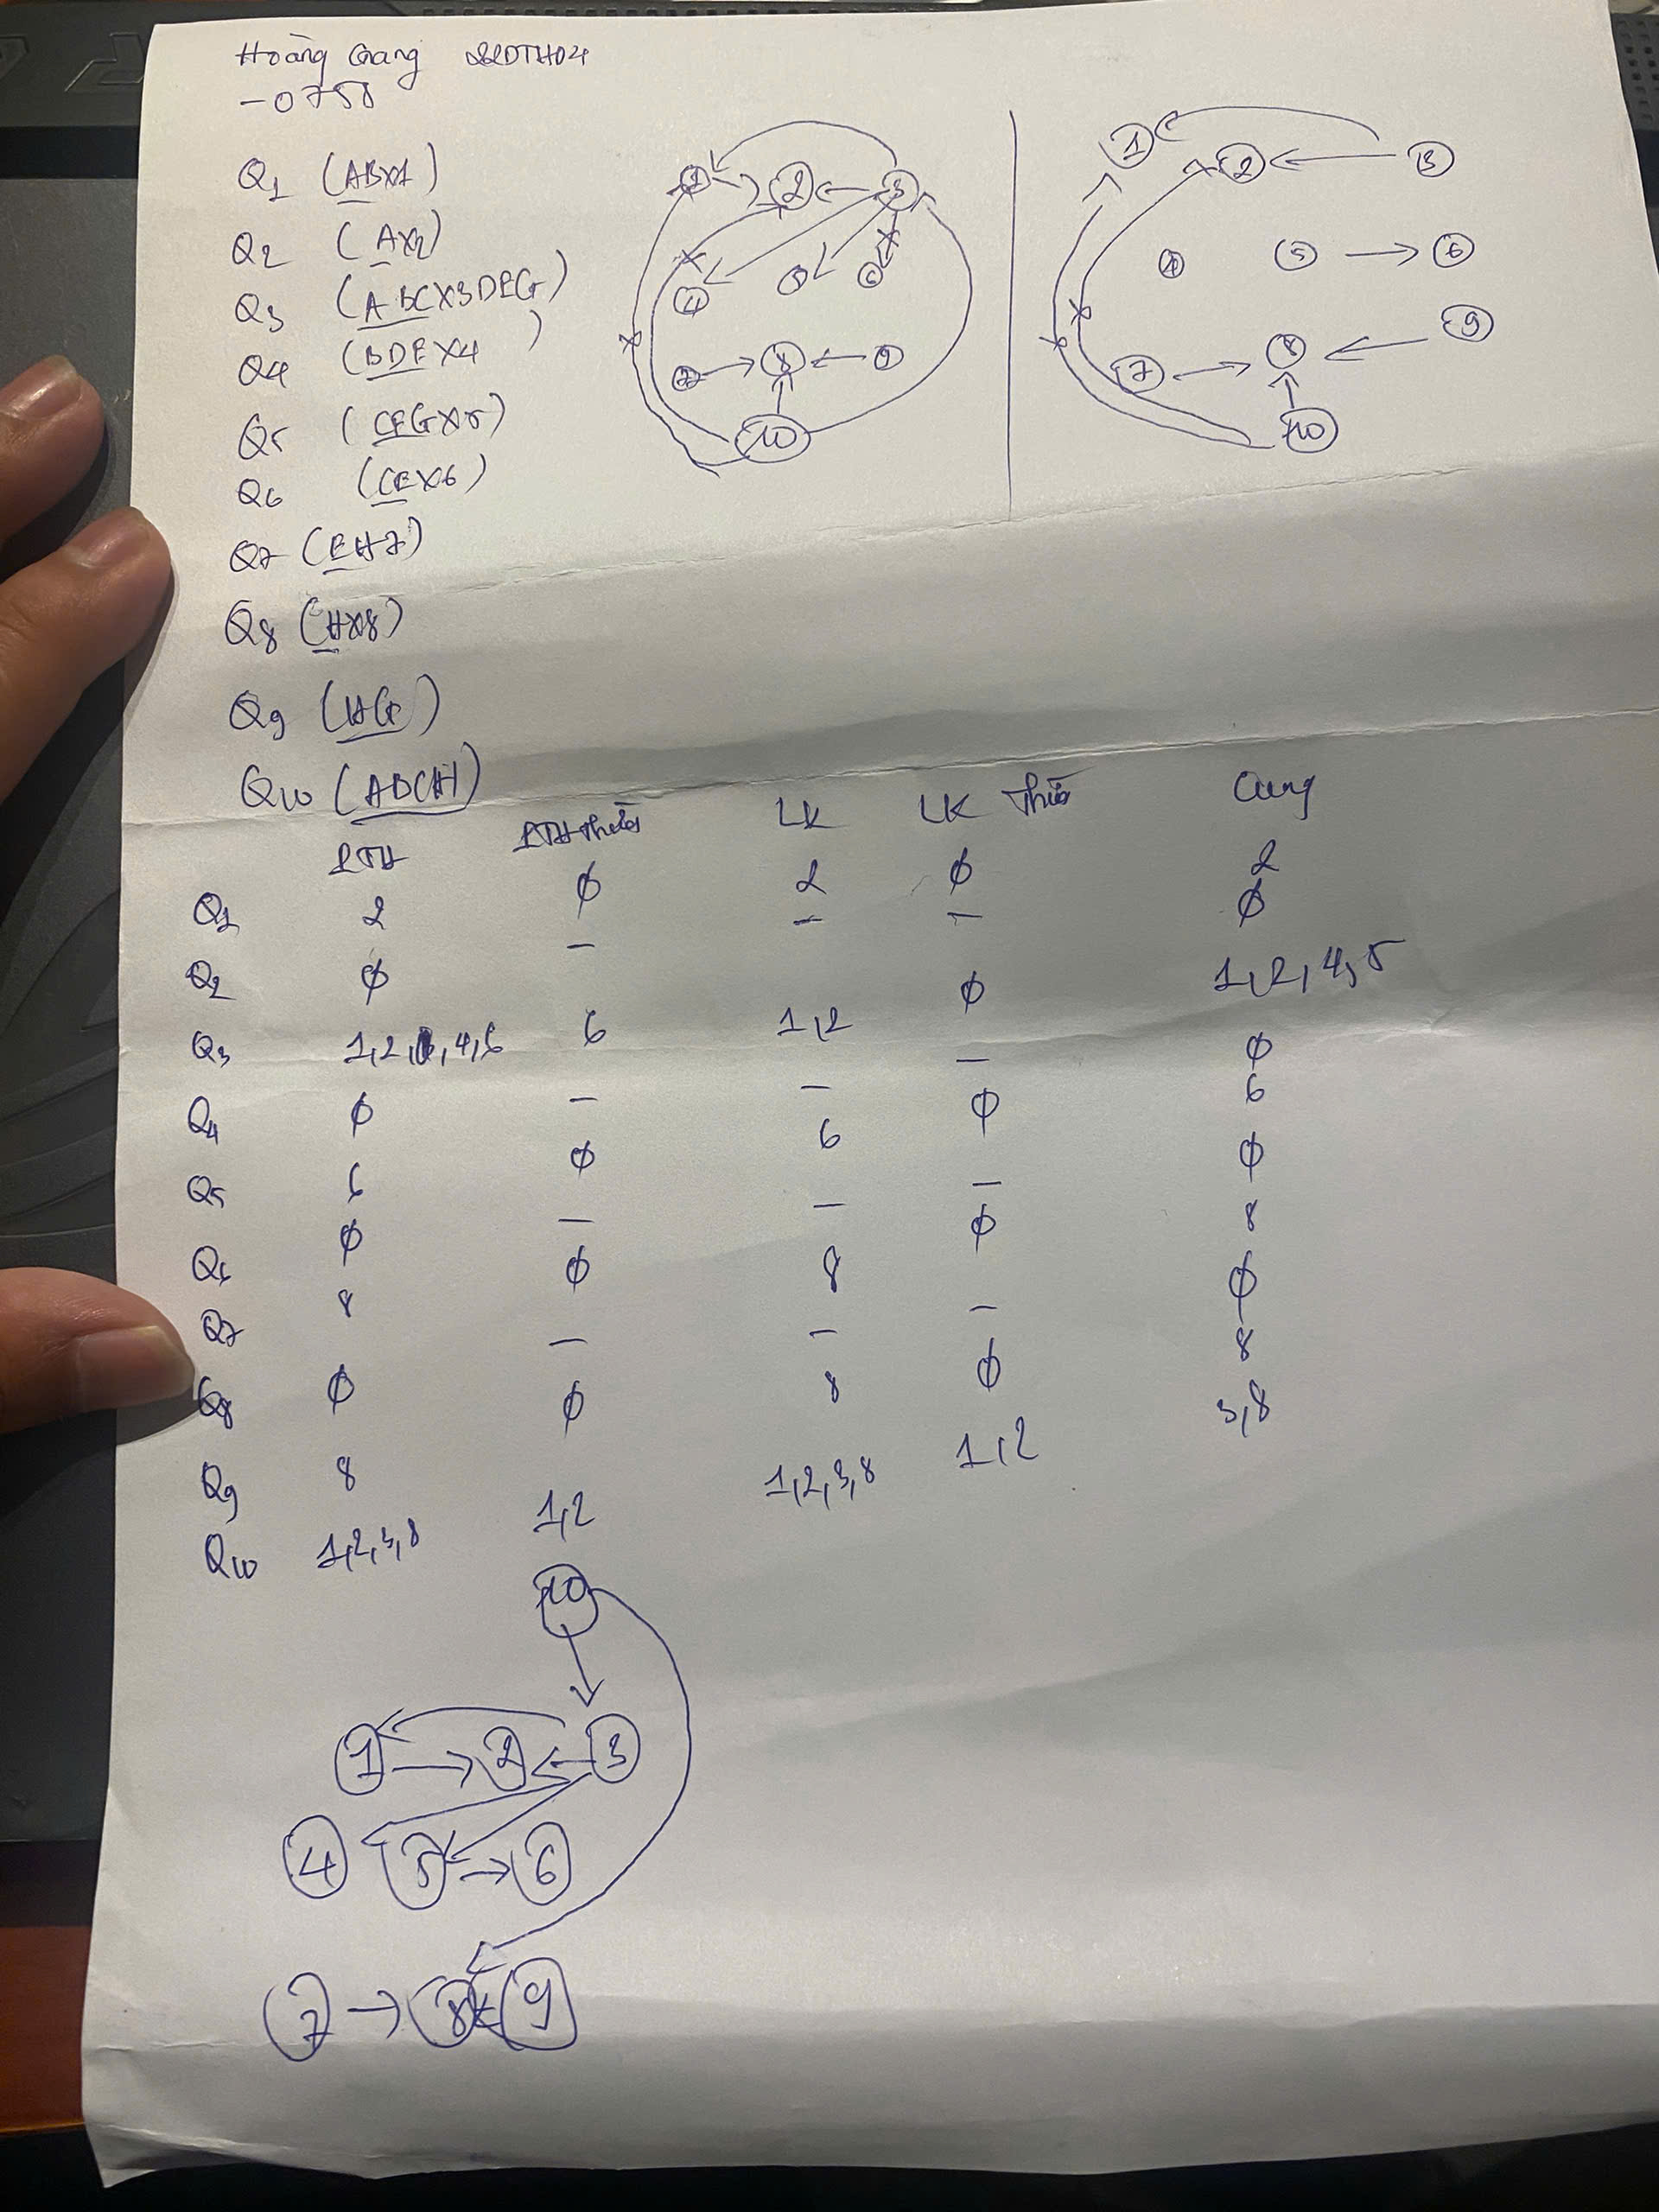 Hoàng Giang 22DTH04
-0758
Q1 (ABX1)
Q2 (AX2)
Q3 (ABCX3DEG)
Q4 (BDEX4)
Q5 (CEGX5)
Q6 (CEX6)
Q7 (EH7)
Q8 (HX8)
Q9 (HG)
Q10 (ABCH)
1 2 3
4 5 6
7 8 9
10
1 2 3
4 5 6
7 8 9
10
LTH LTH thừa LK LK Thừa Cung
Q1 2 ϕ 2 ϕ 2
Q2 ϕ — — — ϕ
Q3 1,2, ,4,6 6 1,2 ϕ 1,2,4,5
Q4 ϕ — — — ϕ
Q5 6 ϕ 6 ϕ 6
Q6 ϕ — — — ϕ
Q7 8 ϕ 8 ϕ 8
Q8 ϕ — — — ϕ
Q9 8 ϕ 8 ϕ 8
Q10 1,2,3,8 1,2 1,2,3,8 1,2 3,8
10
1 2 3
4 5 6
7 8 9